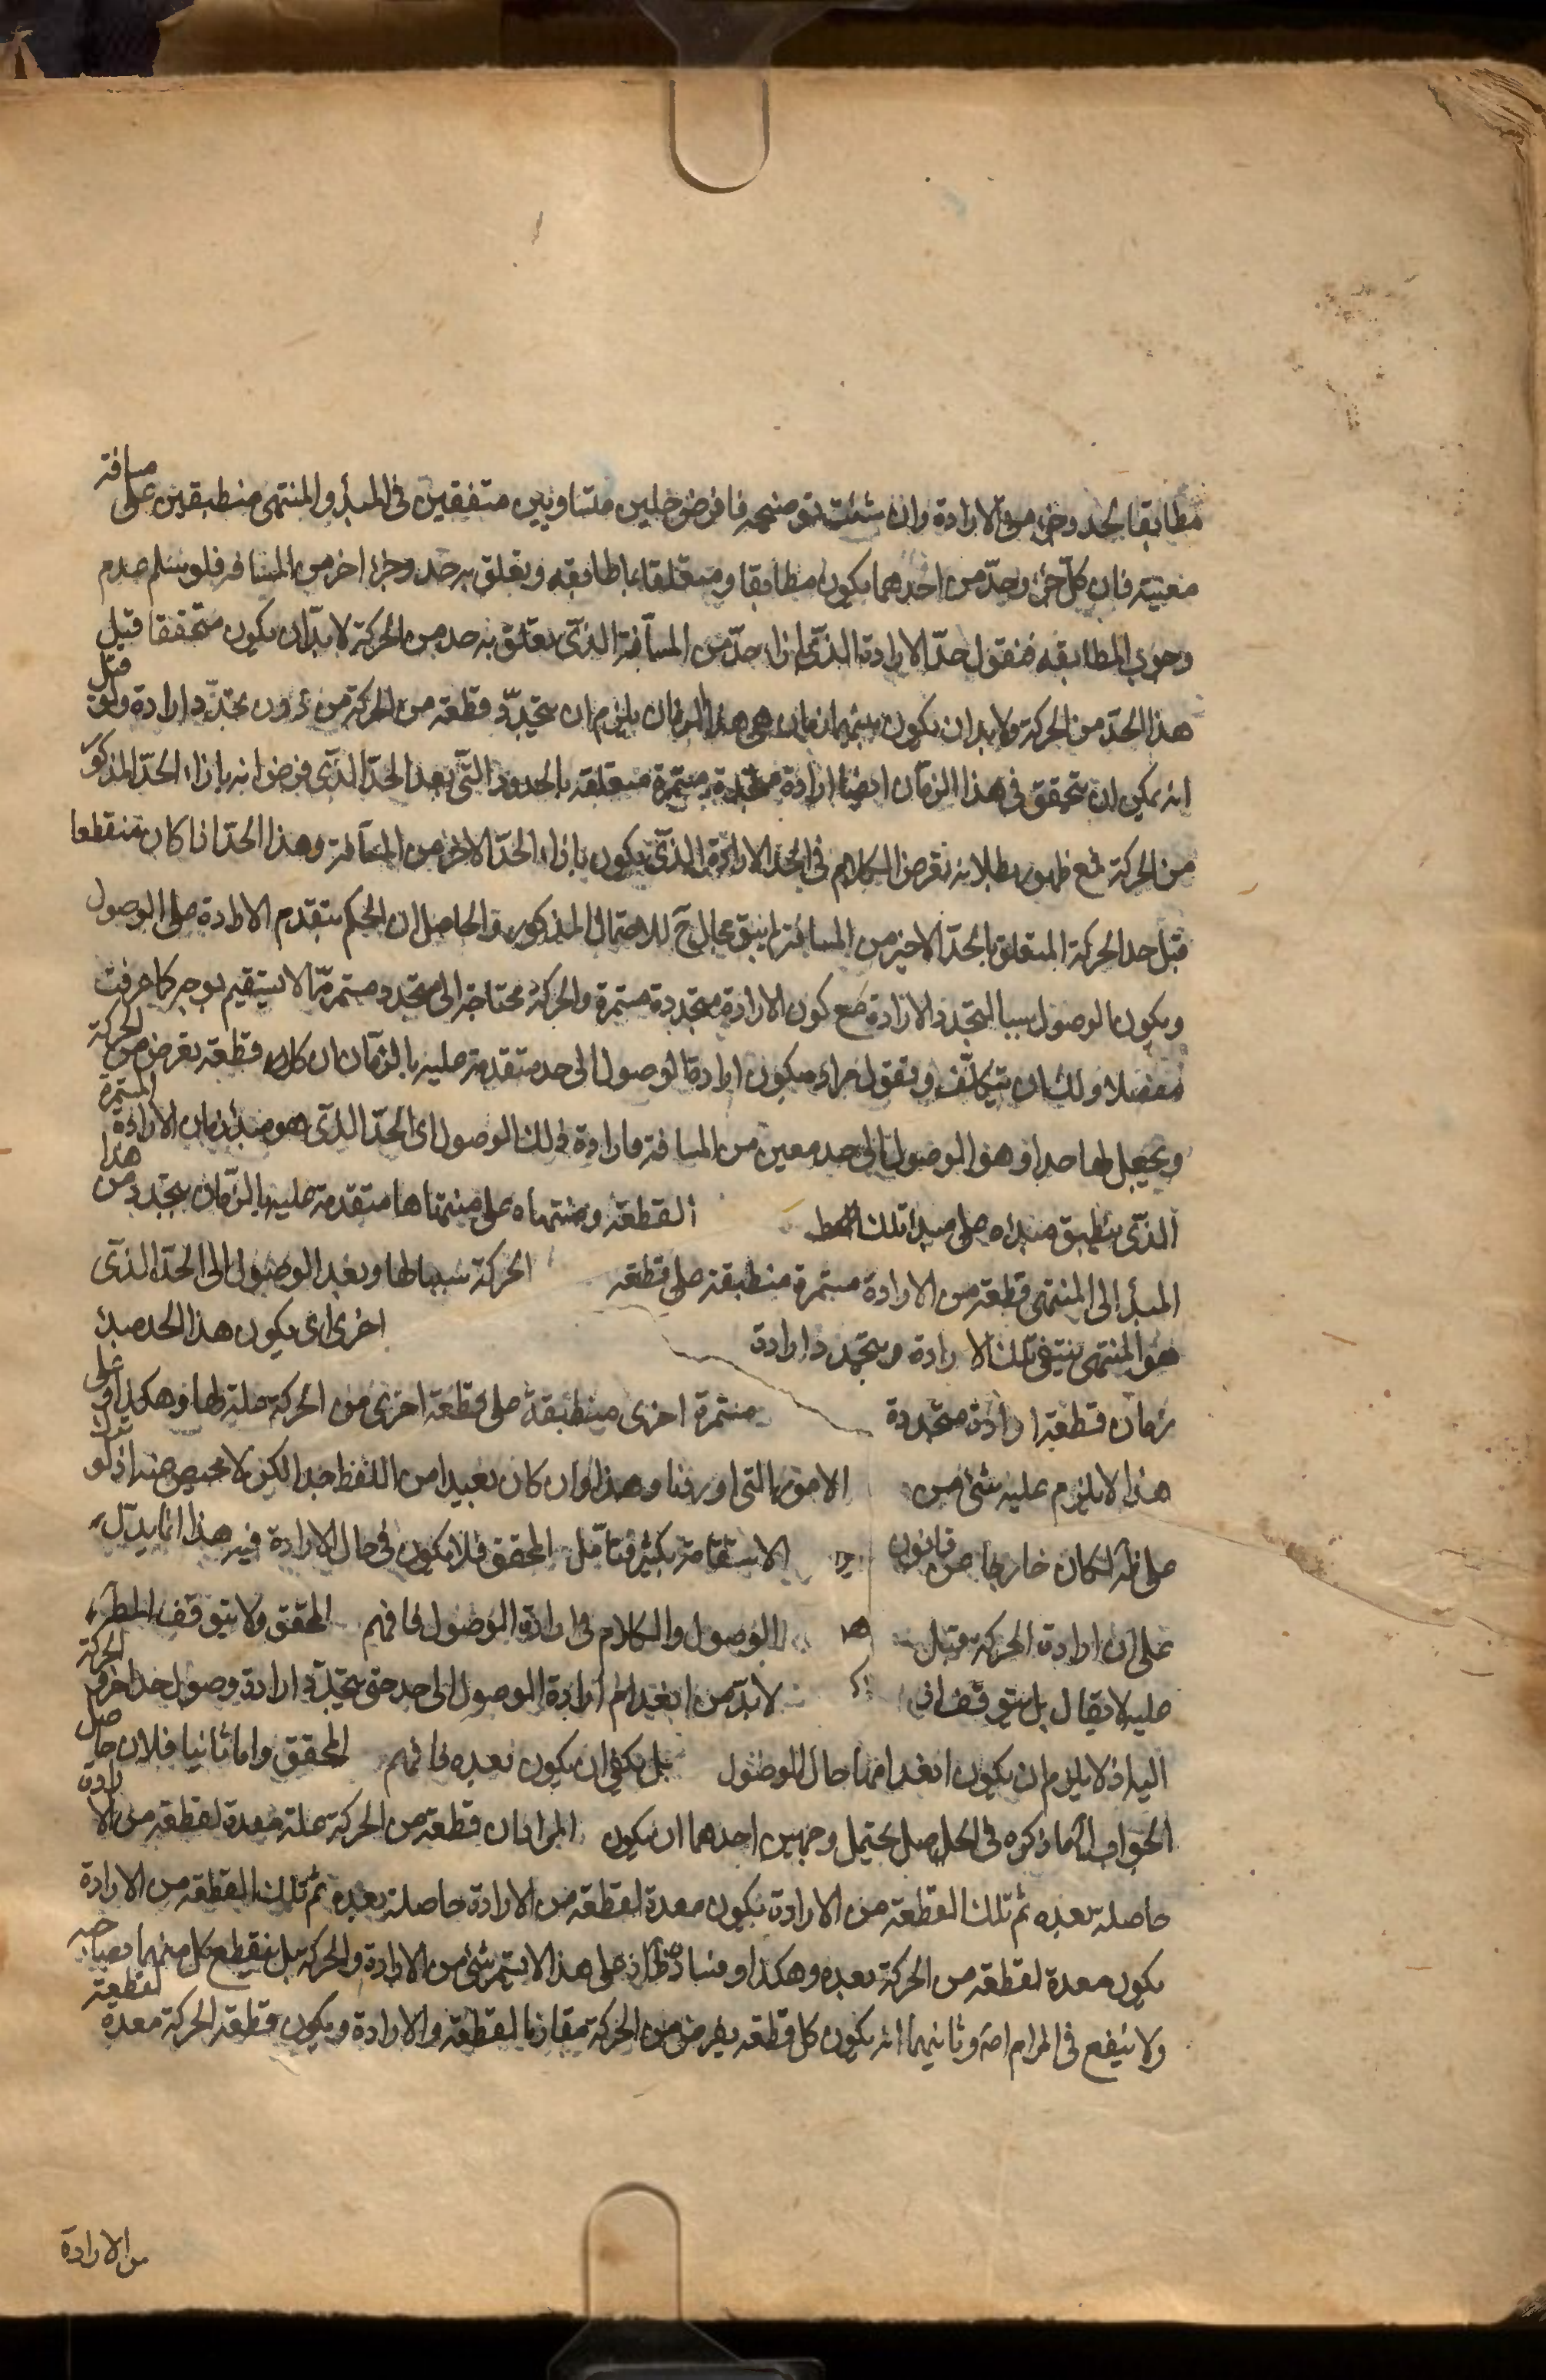 مطابقا لحد وجزء من الارادة وان شئت توضيحه فافرض خطين متساويين متفقين فى المبدأ والمنتهى منطبقين على مسافة
معينة فان كل جزء وحدّ من احدهما يكون مطابقا ومتعلقا بما طابقه ويعلق به حد وجزء اخر من المسافة فلو سلم عدم
وجوب المطابقه فنقول حدّ الارادة الذى بازاء حدّ من المسافة الذى يعلق به حد من الحركة لابد ان يكون متحققا قبل
هذا الحدّ من الحركة ولابد ان يكون بينهما زمان هى هذا الزمان يلزم ان يتجدّد قطعة من الحركة من دون تجدّد ارادة ولو قيل
انه يمكن ان يتحقق فى هذا الزمان ايضا ارادة متجددة مستمرة متعلقه بالحدود التى بعد الحدّ الذى فرض انه بازاء الحدّ المذكور
من الحركة فمع ظهور بطلانه نفرض الكلام فى الحد الارادة الذى يكون بازاء الحدّ الاخر من المسافة وهذا الحدّ اذا كان منقطعا
قبل حد الحركة المتعلق بالحدّ الاخير من المسافة لم يبق مجال ح للاحتمال المذكور والحاصل ان الحكم بتقدم الارادة على الوصول
ويكون الوصول سببا لتجدد الارادة مع كون الارادة متجددة مستمرة والحركة محتاجة الى متجدد مستمر مما لا يستقيم بوجه كما عرفت
مفصلا ولك ان تتكلف وتقول مراده يكون ارادة الوصول الى حد متقدمة عليه بالزمان ان كل قطعة يفرض من الحركة
ويجعل لها حد او هو الوصول الى حد معين من المسافة فارادة ذلك الوصول اى الحدّ الذى هو مبدئ زمان الارادة المستمرة
الذى ينطبق مبداه على مبدا تلك القطعة ومنتهاه على منتهاها متقدمة عليه بالزمان يتجدد من هذا
المبدأ الى المنتهى قطعة من الارادة مستمرة منطبقة على قطعه الحركة سببا لها وبعد الوصول الى الحدّ الذى
هو المنتهى ينتفى تلك الارادة ويتجدد ارادة اخرى اى يكون هذا الحد مبدئ
زمان قطعة ارادة متجددة مستمرة اخرى منطبقة على قطعة اخرى من الحركة علة لها وهكذا وعلى
هذا لا يلزم عليه شئ من الامور التى اوردنا وهذا وان كان بعيدا من اللفظ جدا لكن لا محيص عنه اذ لو
على ظاهره لكان خارجا عن قانون الاستقامة بكثير فتامّل المحقق فلا يكون فى حال الارادة فيه هذا انما يدل
على ان ارادة الحركة قبل الوصول والكلام فى ارادة الوصول فافهم المحقق ولا يتوقف الحركة
عليه لا يقال بل يتوقف اذ لابدّ من انعدام ارادة الوصول الى حد حتى يتجدّد ارادة وصول حد اخر
اليه اذ لا يلزم ان يكون انعدامها حال الوصول بل يكفى ان يكون بعده فافهم المحقق واما ثانيا فلان حاصل
الجواب ما ذكره فى الحل يحتمل وجهين احدهما ان يكون المراد ان قطعة من الحركة علة معدة لقطعة من الارادة
حاصلة بعده ثم تلك القطعة من الارادة يكون معدة لقطعة من الارادة حاصلة بعده ثم تلك القطعة من الارادة
يكون معدة لقطعة من الحركة بعده وهكذا وفساده ظ اذ على هذا لا يستمر شئ من الارادة والحركة بل ينقطع كل منهما بصاحبه
ولا ينفع فى المرام اصلا وثانيهما انه يكون كل قطعه يفرض من الحركة مقارنا لقطعة والارادة ويكون قطعة الحركة معدة لقطعة
من الارادة